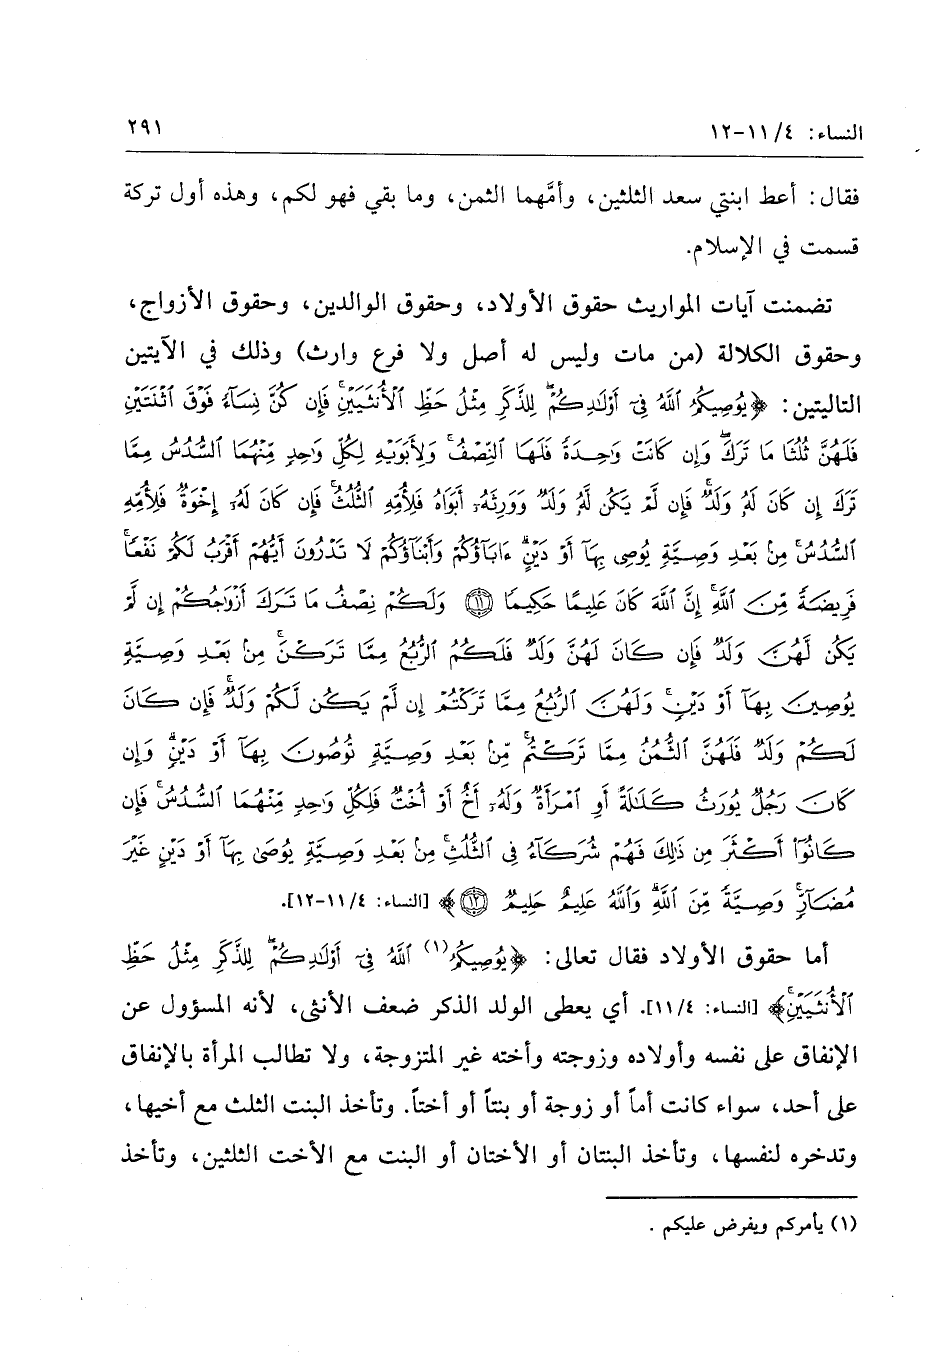 النساء: ٤/ ١١-١٢
٢٩١
فقال: أعط ابنتي سعد الثلثين، وأمَّهما الثمن، وما بقي فهو لكم، وهذه أول تركة
قسمت في الإسلام.
تضمنت آيات المواريث حقوق الأولاد، وحقوق الوالدين، وحقوق الأزواج،
وحقوق الكلالة (من مات وليس له أصل ولا فرع وارث) وذلك في الآيتين
التاليتين: ﴿يُوصِيكُمُ ٱللَّهُ فِيٓ أَوۡلَٰدِكُمۡۖ لِلذَّكَرِ مِثۡلُ حَظِّ ٱلۡأُنثَيَيۡنِۚ فَإِن كُنَّ نِسَآءٗ فَوۡقَ ٱثۡنَتَيۡنِ
فَلَهُنَّ ثُلُثَا مَا تَرَكَۖ وَإِن كَانَتۡ وَٰحِدَةٗ فَلَهَا ٱلنِّصۡفُۚ وَلِأَبَوَيۡهِ لِكُلِّ وَٰحِدٖ مِّنۡهُمَا ٱلسُّدُسُ مِمَّا
تَرَكَ إِن كَانَ لَهُۥ وَلَدٞۚ فَإِن لَّمۡ يَكُن لَّهُۥ وَلَدٞ وَوَرِثَهُۥٓ أَبَوَاهُ فَلِأُمِّهِ ٱلثُّلُثُۚ فَإِن كَانَ لَهُۥٓ إِخۡوَةٞ فَلِأُمِّهِ
ٱلسُّدُسُۚ مِنۢ بَعۡدِ وَصِيَّةٖ يُوصِي بِهَآ أَوۡ دَيۡنٍۗ ءَابَآؤُكُمۡ وَأَبۡنَآؤُكُمۡ لَا تَدۡرُونَ أَيُّهُمۡ أَقۡرَبُ لَكُمۡ نَفۡعٗاۚ
فَرِيضَةٗ مِّنَ ٱللَّهِۗ إِنَّ ٱللَّهَ كَانَ عَلِيمًا حَكِيمٗا ۝١١ وَلَكُمۡ نِصۡفُ مَا تَرَكَ أَزۡوَٰجُكُمۡ إِن لَّمۡ
يَكُن لَّهُنَّ وَلَدٞۚ فَإِن كَانَ لَهُنَّ وَلَدٞ فَلَكُمُ ٱلرُّبُعُ مِمَّا تَرَكۡنَۚ مِنۢ بَعۡدِ وَصِيَّةٖ
يُوصِينَ بِهَآ أَوۡ دَيۡنٖۚ وَلَهُنَّ ٱلرُّبُعُ مِمَّا تَرَكۡتُمۡ إِن لَّمۡ يَكُن لَّكُمۡ وَلَدٞۚ فَإِن كَانَ
لَكُمۡ وَلَدٞ فَلَهُنَّ ٱلثُّمُنُ مِمَّا تَرَكۡتُمۚ مِّنۢ بَعۡدِ وَصِيَّةٖ تُوصُونَ بِهَآ أَوۡ دَيۡنٖۗ وَإِن
كَانَ رَجُلٞ يُورَثُ كَلَٰلَةً أَوِ ٱمۡرَأَةٞ وَلَهُۥٓ أَخٌ أَوۡ أُخۡتٞ فَلِكُلِّ وَٰحِدٖ مِّنۡهُمَا ٱلسُّدُسُۚ فَإِن
كَانُوٓاْ أَكۡثَرَ مِن ذَٰلِكَ فَهُمۡ شُرَكَآءُ فِي ٱلثُّلُثِۚ مِنۢ بَعۡدِ وَصِيَّةٖ يُوصَىٰ بِهَآ أَوۡ دَيۡنٍ غَيۡرَ
مُضَآرّٖۚ وَصِيَّةٗ مِّنَ ٱللَّهِۗ وَٱللَّهُ عَلِيمٌ حَلِيمٞ ۝١٢﴾ [النساء: ٤/ ١١-١٢].
أما حقوق الأولاد فقال تعالى: ﴿يُوصِيكُمُ(١) ٱللَّهُ فِيٓ أَوۡلَٰدِكُمۡۖ لِلذَّكَرِ مِثۡلُ حَظِّ
ٱلۡأُنثَيَيۡنِۚ﴾ [النساء: ٤/ ١١]. أي يعطى الولد الذكر ضعف الأنثى، لأنه المسؤول عن
الإنفاق على نفسه وأولاده وزوجته وأخته غير المتزوجة، ولا تطالب المرأة بالإنفاق
على أحد، سواء كانت أماً أو زوجة أو بنتاً أو أختاً. وتأخذ البنت الثلث مع أخيها،
وتدخره لنفسها، وتأخذ البنتان أو الأختان أو البنت مع الأخت الثلثين، وتأخذ
(١) يأمركم ويفرض عليكم .